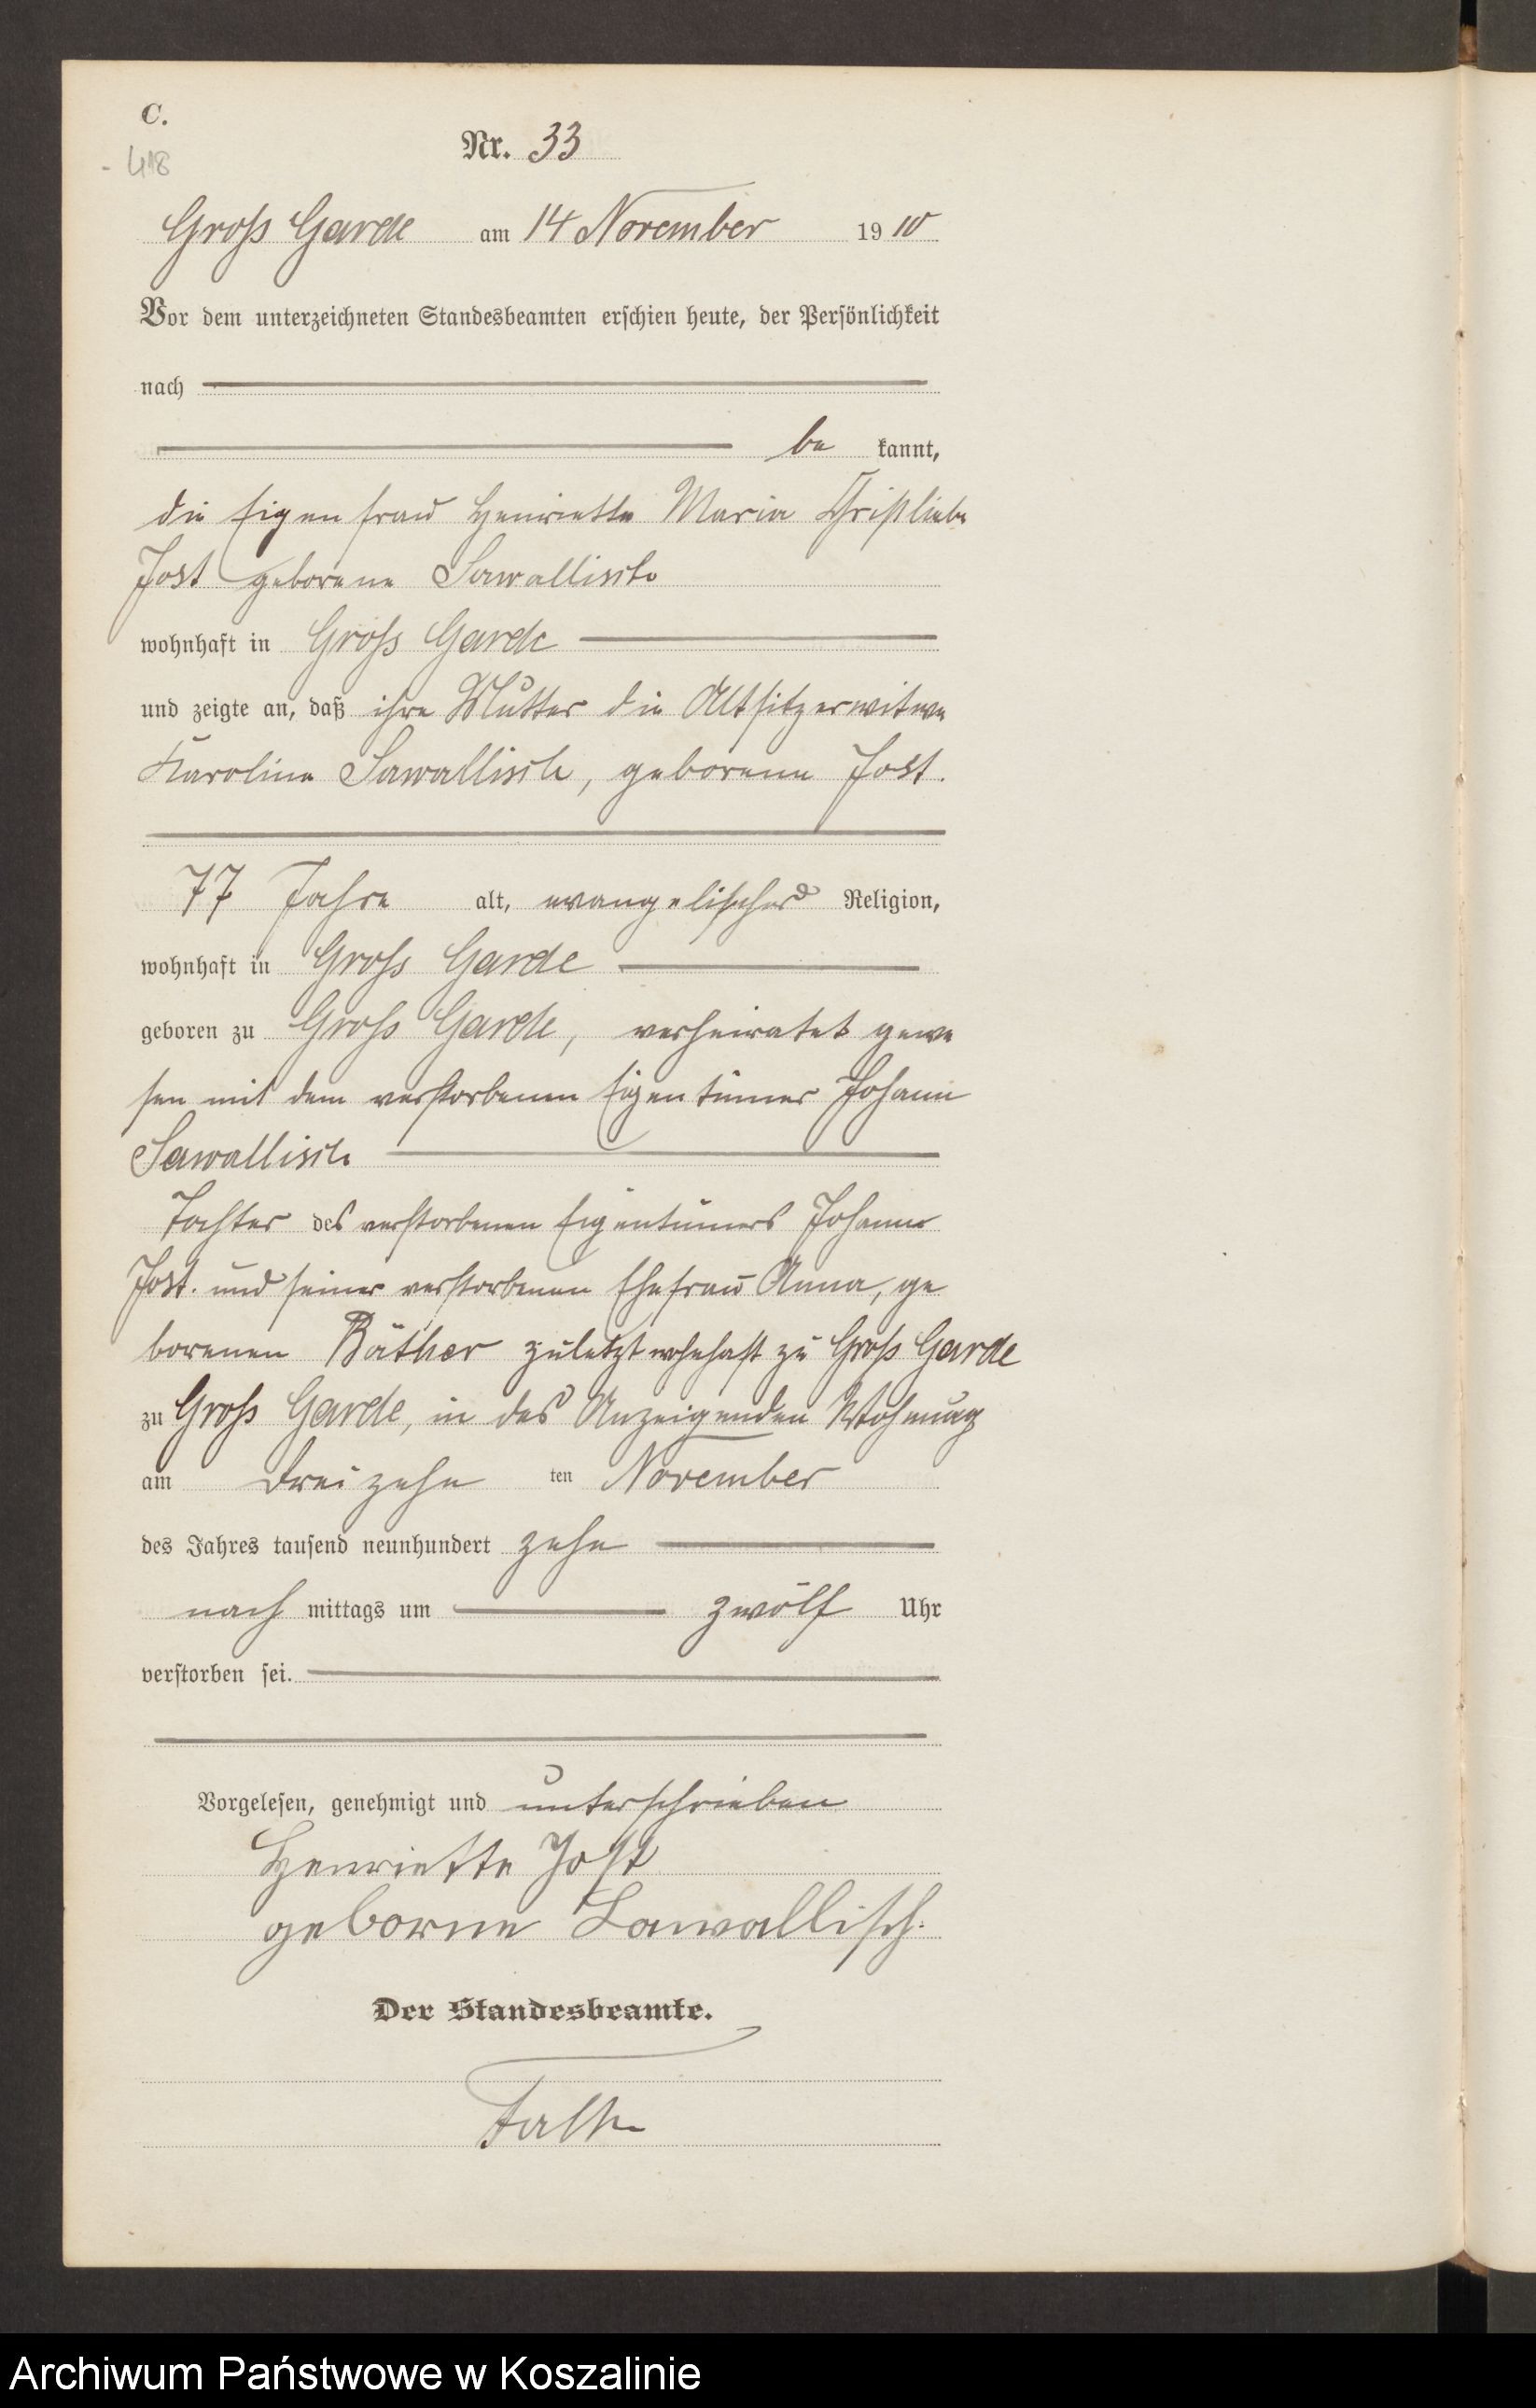 C.
- 418
Nr. 33
Gross Garde am 14 November 1910
Vor dem unterzeichneten Standesbeamten erschien heute, der Persönlichkeit
nach
be kannt,
die Eigenfrau Henriette Maria Christliebe
Jost geborene Sawallisch
wohnhaft in Gross Garde
und zeigte an, daß ihre Mutter die Altsitzerwitwe
Karoline Sawallisch, geborene Jost.
77 Jahre alt, evangelischer Religion,
wohnhaft in Gross Garde
geboren zu Gross Garde, verheiratet gewe
sen mit dem verstorbenen Eigentümer Johann
Sawallisch
Tochter des verstorbenen Eigentümers Johann
Jost. und seiner verstorbenen Ehefrau Anna, ge
borenen Räther zuletzt wohnhaft zu Gross Garde
zu Gross Garde, in der Anzeigenden Wohnung
am dreizehn ten November
des Jahres tausend neunhundert zehn
nach mittags um zwölf Uhr
verstorben sei.
Vorgelesen, genehmigt und unterschrieben
Henriette Jost
geborne Sawallisch.
Der Standesbeamte.
Archiwum Państwowe w Koszalinie